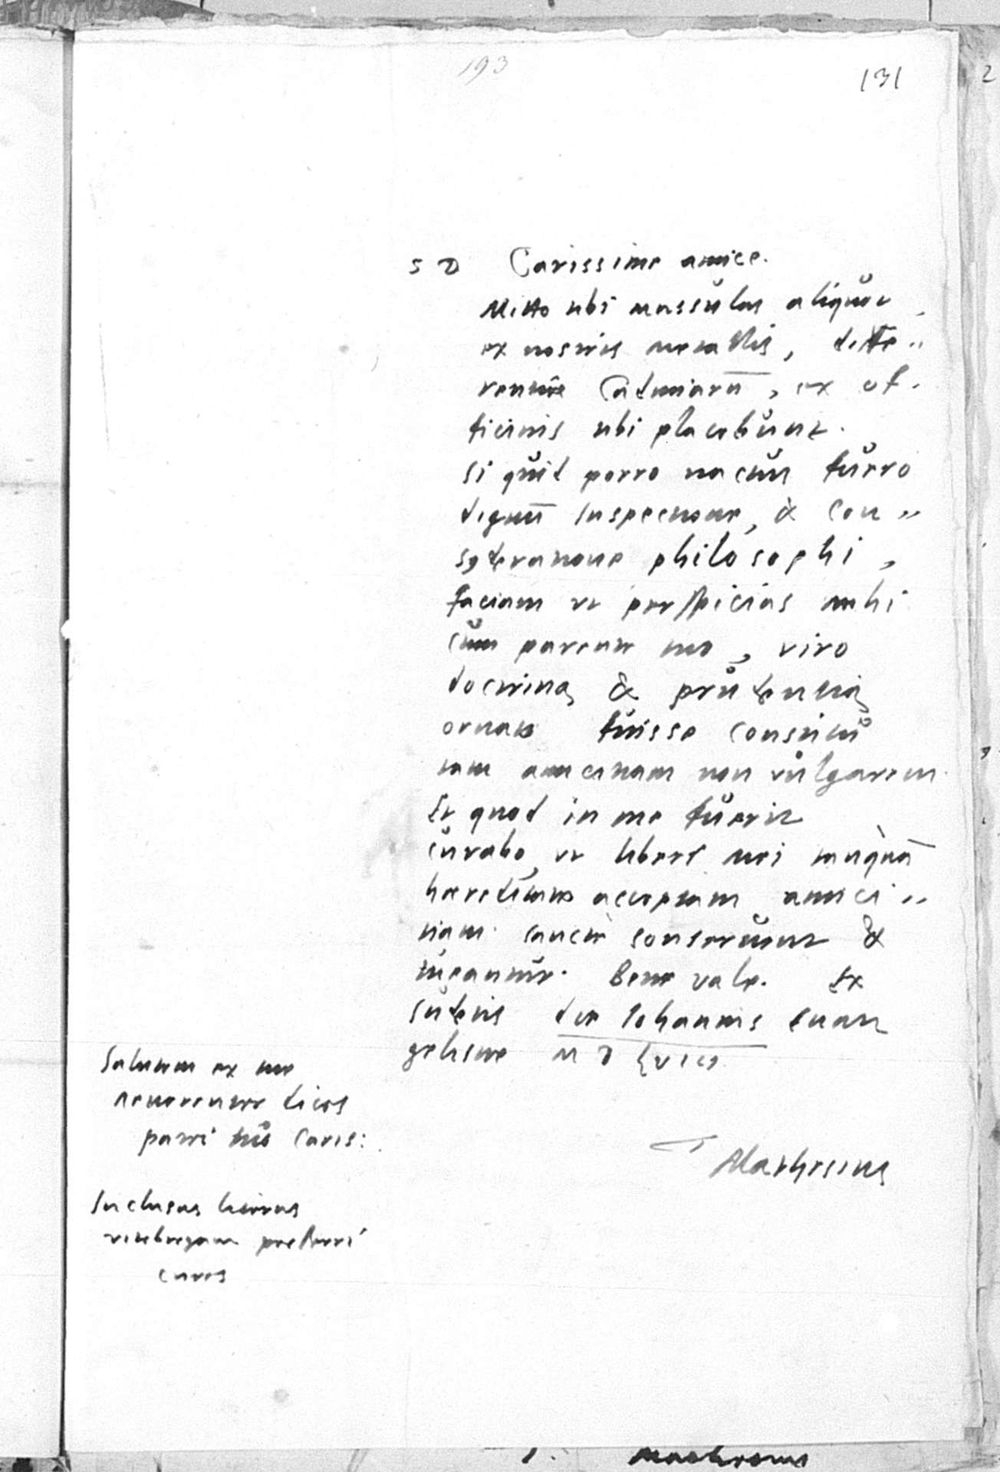 193
131
S D Carissime amice.
Mitto tibi massulas aliquot
ex nostris metallis, diffe„
rentiũ Cadmiarũ, ex of-
ficinis tibi placebunt.
Si quid porro nactus fuero
dignũ Inspectione, & con„
syderatione philosophi,
faciam vt perspicias mihi
cum parente tuo, viro
doctrina & prudentia
ornato fuisse constitu
tam amicitiam non vulgarem
Et quod in me fuerit
curabo, vt liberi mei tanquã
hereditario acceptam amici„
tiam sancte conseruent &
tueantur. Bene vale. Ex
die Iohannis Euan
geliste M D
Mathesius
Salutem ex me
reuerenter dices
patri tuo cariss:
Inclusas literas
vitebergam preferri
cures
Mathesius